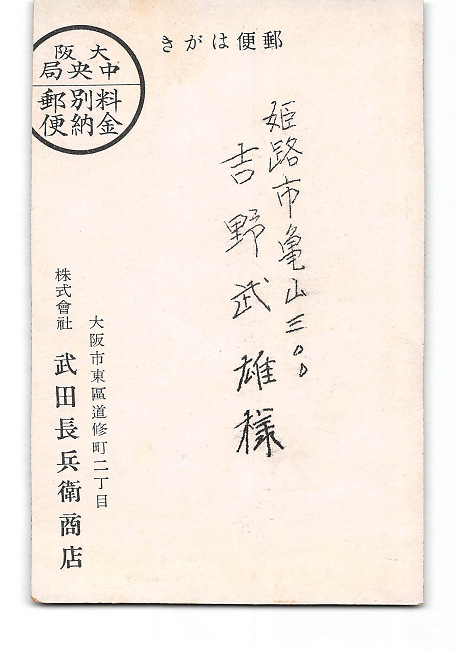 郵便はがき
大阪
中央局
料金
別納
郵便
姫路市亀山三〇〇
吉野武雄様
大阪市東區道修町二丁目
株式會社 武田長兵衛商店